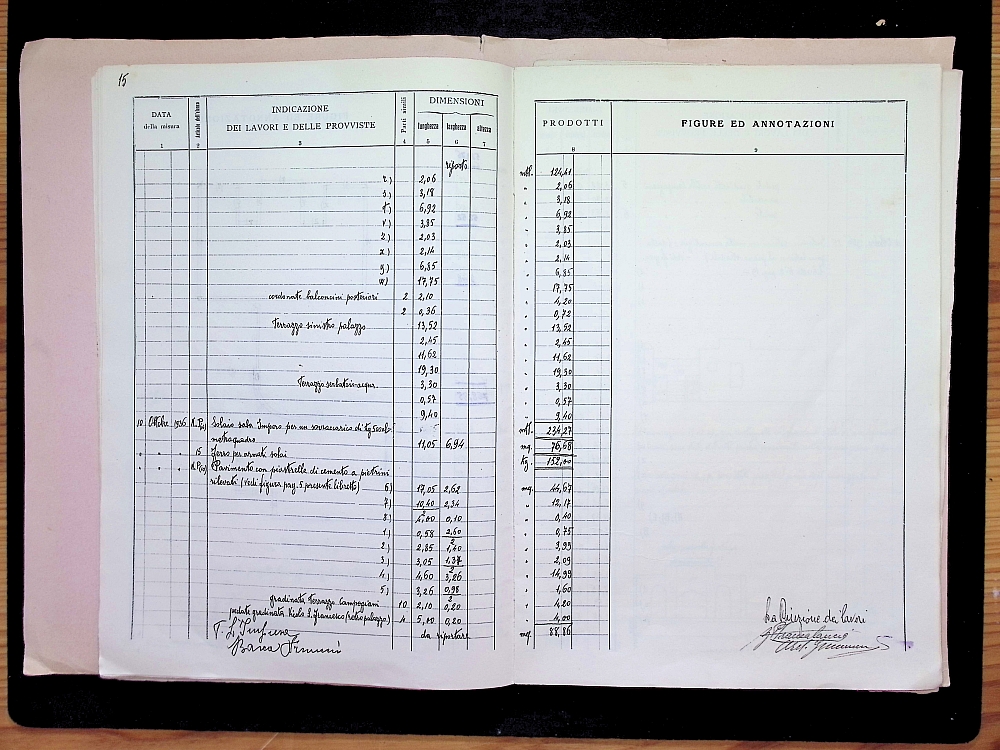 15
DATA della misura Articolo dell'elenco INDICAZIONE DEI LAVORI E DELLE PROVVISTE Parti simili DIMENSIONI lunghezza larghezza altezza PRODOTTI FIGURE ED ANNOTAZIONI
1 2 3 4 5 6 7 8 9
riporto mtl. 124,41
r.) 2,06 " 2,06
s.) 3,18 " 3,18
t.) 6,92 " 6,92
v.) 3,85 " 3,85
z.) 2,03 " 2,03
x) 2,14 " 2,14
y) 6,85 " 6,85
w) 17,75 " 17,75
cordonate balconcini posteriori 2 2,10 " 4,20
2 0,36 " 0,72
Terrazzo sinistro palazzo 13,52 " 13,52
2,45 " 2,45
11,62 " 11,62
19,30 " 19,30
Terrazzo serbatoio acqua. 3,30 " 3,30
0,57 " 0,57
9,40 " 9,40
mtl. 234,27
10 Ottobre 1936 Solaio per un sovraccarico di Kg.
metroquadro 11,05 6,94 mq. 76,68
" " " 15 Ferro per armate solai Kg. 152,00
" " " Pavimento con piastrelle di cemento a pietrini
rilevati (vedi figura pag. 5 presente libretto) 6) 17,05 2,62 mq. 44,67
7) 10,40 2,34 " 12,17
2
8.) 4,00 0,10 " 0,40
1.) 0,58 2,60 " 0,75
2
2.) 2,85 1,40 " 3,99
3.) 3,05 1,37 " 2,09
2
4.) 4,60 3,26 " 14,99
5) 3,26 0,98 " 1,60
2
gradinata Terrazzo Campogiani 10 2,10 0,20 " 4,20
pedate gradinata S. Francesco (retro palazzo) 4 5,00 0,20 " 4,00
da riportare mq. 88,86
La Direzione dei lavori